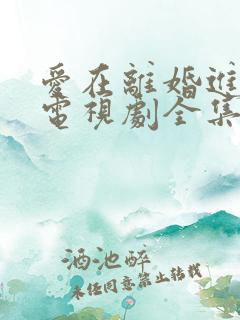 愛在離婚進
電視劇全集
酒池醉
未经同意禁止转载